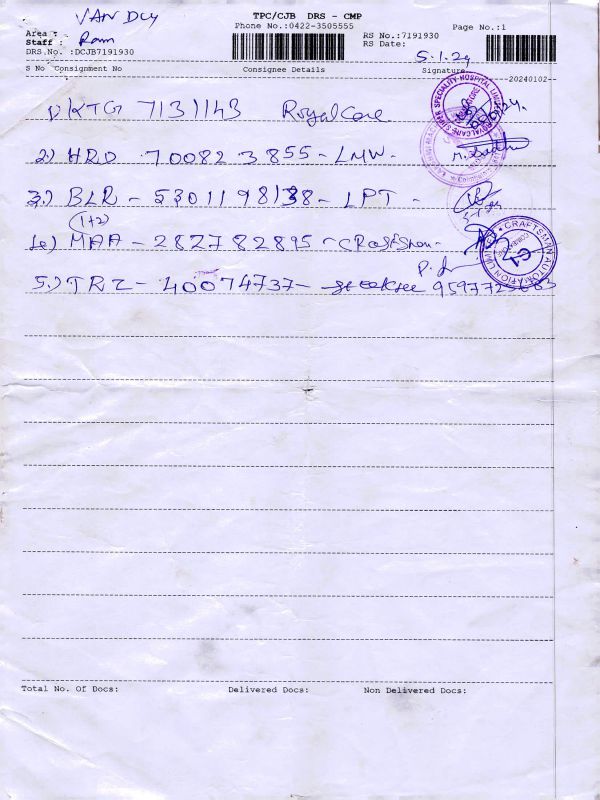 VAN DLY
TPC/CJB DRS - CMP
Phone No.:0422-3505555
Page No.:1
Area :
Staff : Ram
RS No.:7191930
DRS.No. :DCJB7191930
RS Date: 5.1.24
S No Consignment No Consignee Details Signature
20240102--
1) KTG 7131143 Royal Care
2) HRD 700823855 - LMW -
3.) BLR - 5301198138 - LPT -
(1+2)
4) MAA - 282782895 - Craftsman
5.) TRZ - 40074737 -
CRAFTSMAN AUTOMATION LIMITED
Total No. Of Docs: Delivered Docs: Non Delivered Docs: